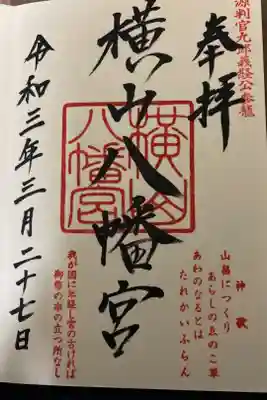 源判官九郎義経公参籠
奉拝
横山八幡宮
横山
八幡宮
神歌
山畠につくり
あらしのゑのこ草
あわのなるとは
たれかいふらん
我が国に年経し宮の古ければ
御幣の串の立つ所なし
令和三年三月二十七日